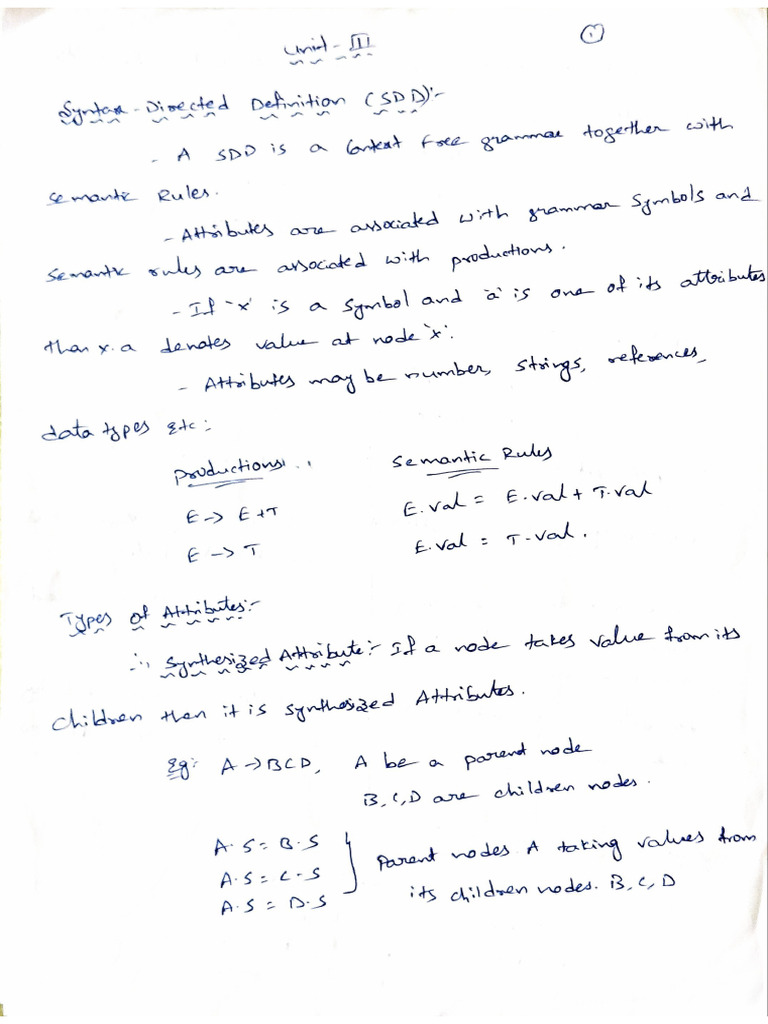 Unit - III
1
Syntax - Directed Definition (SDD):-
- A SDD is a Context Free grammar together with
Semantic Rules.
- Attributes are associated with grammar Symbols and
Semantic rules are associated with productions.
- If 'x' is a symbol and 'a' is one of its attributes
than x.a denotes value at node 'x'.
- Attributes may be number, strings, references,
data types etc:
Productions Semantic Rules
E -> E+T E.val = E.val + T.val
E -> T E.val = T.val.
Types of Attributes:-
∴ Synthesized Attribute:- If a node takes value from its
children then it is synthesized Attributes.
Eg: A -> BCD, A be a parent node
B, C, D are children nodes.
A.S = B.S
A.S = C.S
A.S = D.S
Parent nodes A taking values from
its children nodes. B, C, D